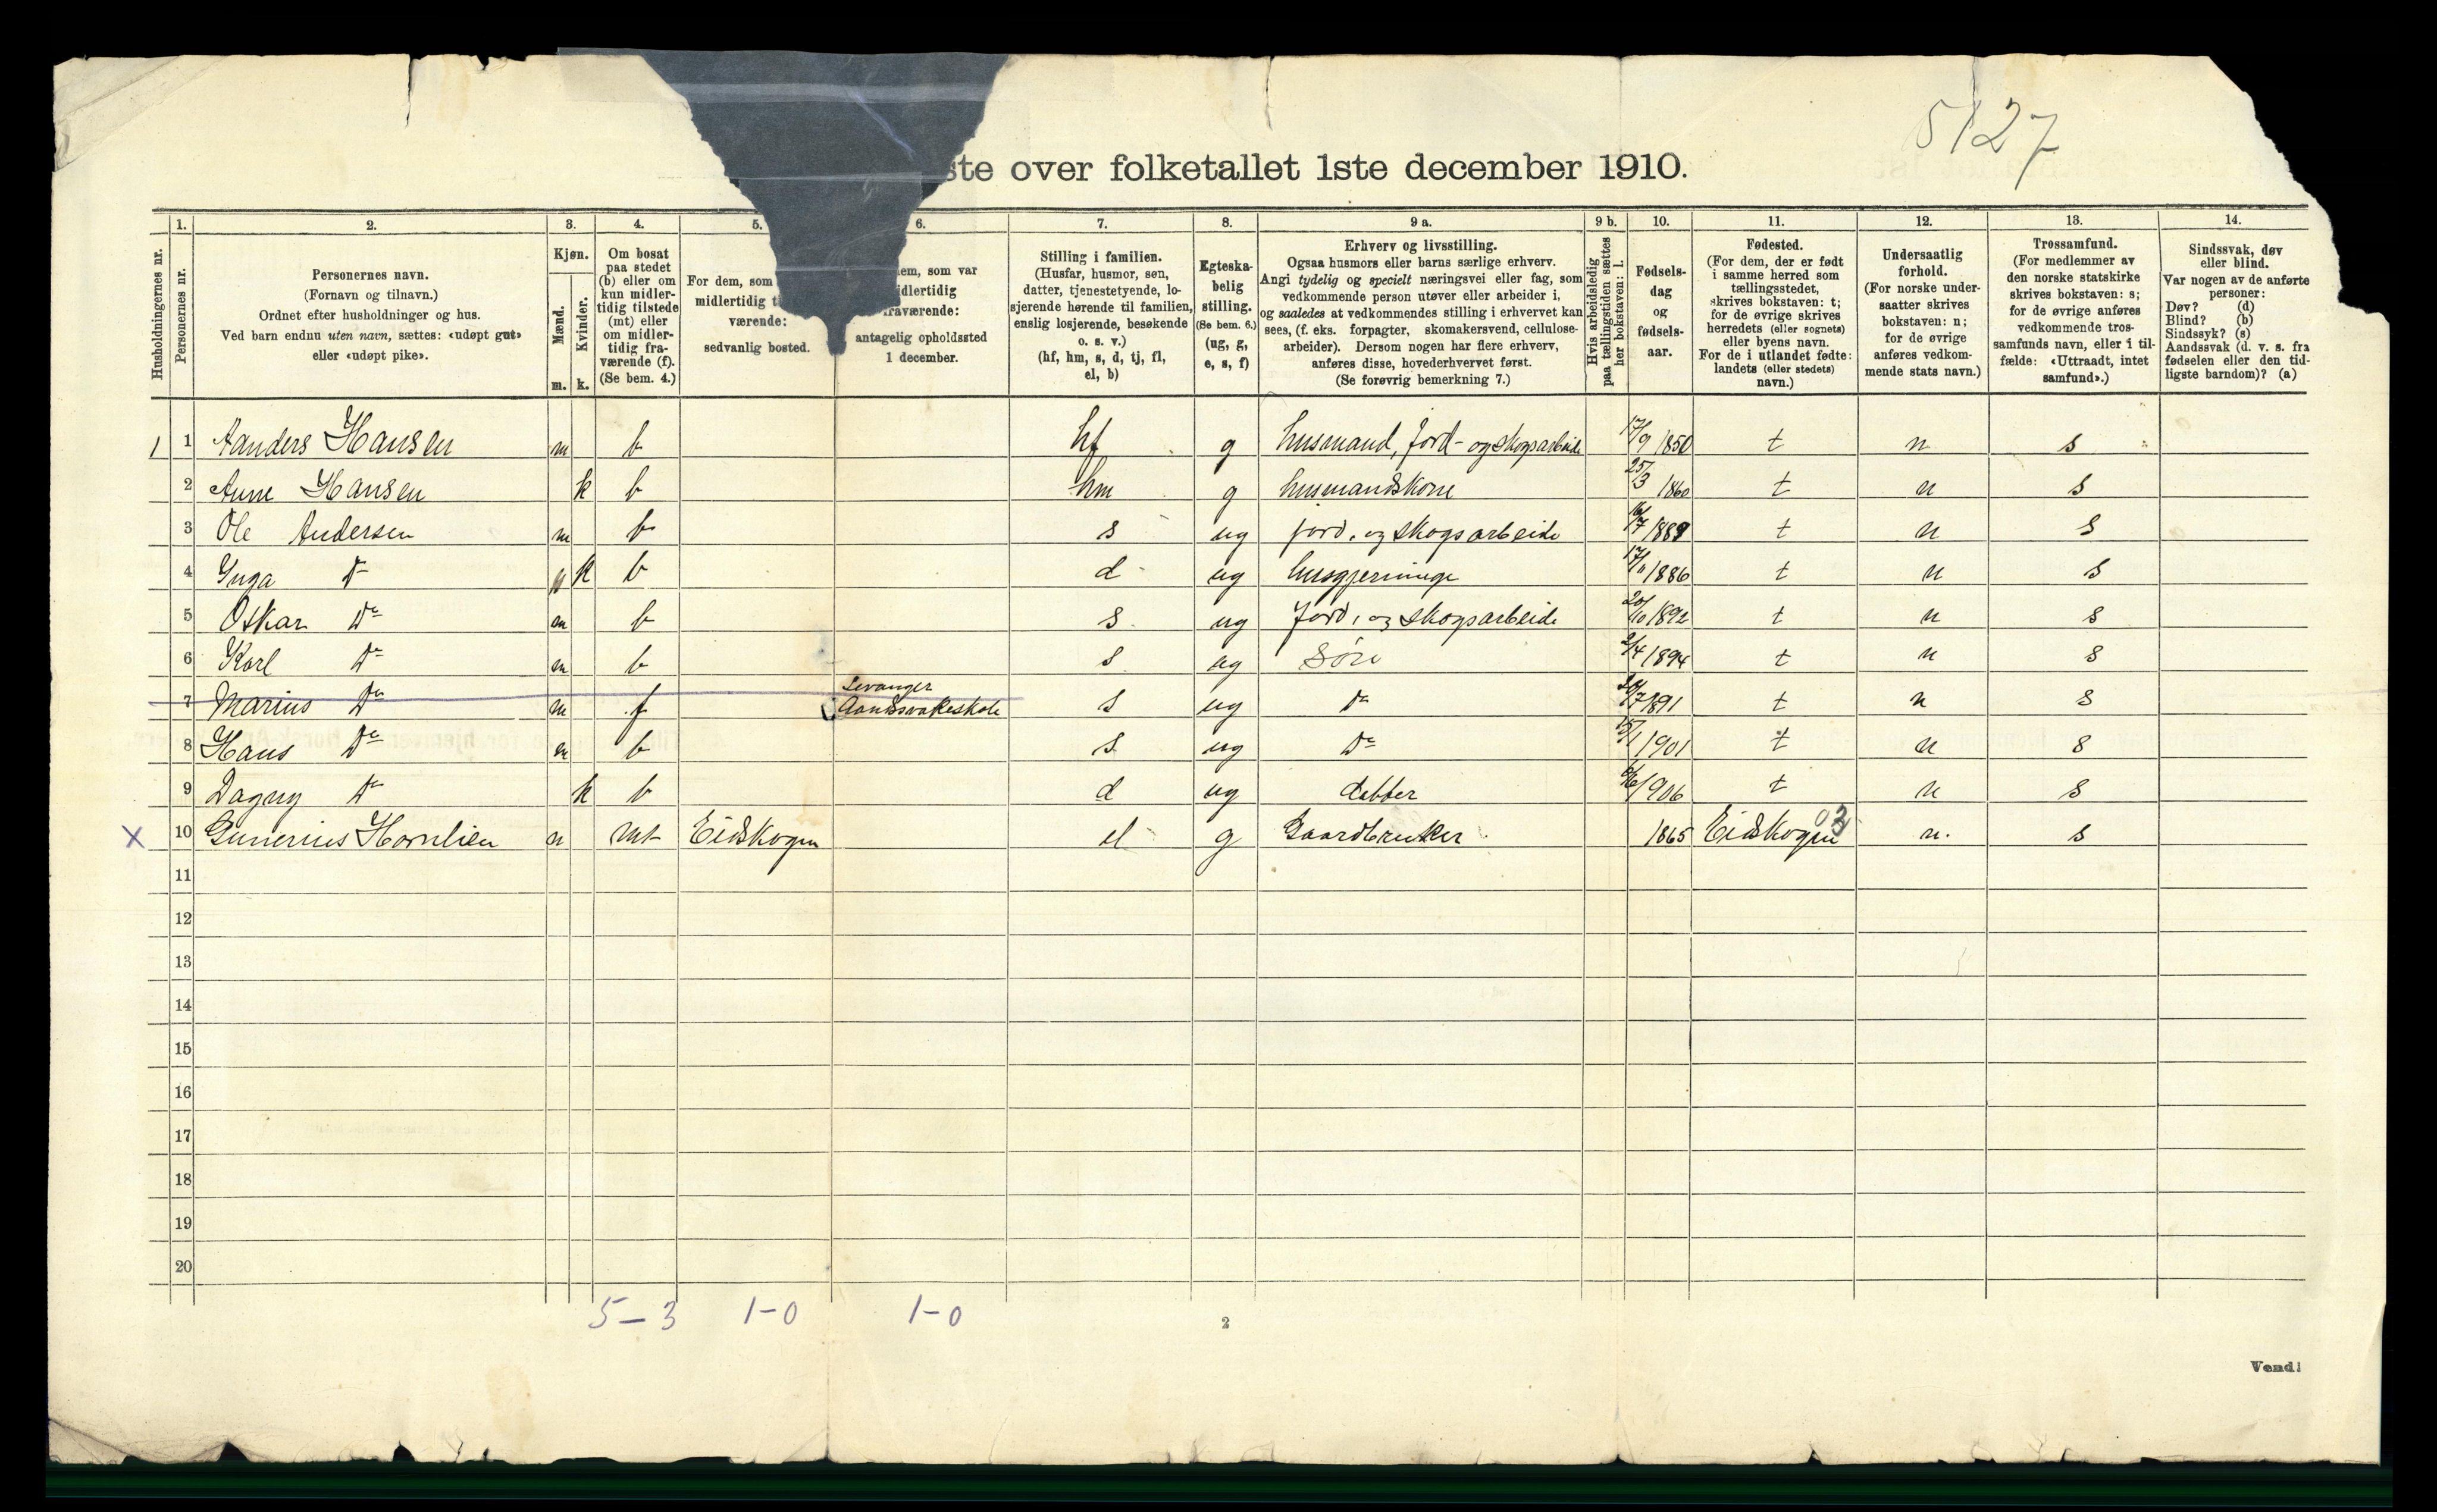 5127
ste over folketallet 1ste december 1910.
1. 2. 3. 4. 5. 6. 7. 8. 9 a. 9 b. 10. 11. 12. 13. 14.
Husholdningernes nr.
Personernes nr.
Personernes navn.
(Fornavn og tilnavn.)
Ordnet efter husholdninger og hus.
Ved barn endnu uten navn, sættes: «udøpt gut»
eller «udøpt pike».
Kjøn.
Mænd.
Kvinder.
m. k.
Om bosat
paa stedet
(b) eller om
kun midler-
tidig tilstede
(mt) eller
om midler-
tidig fra-
værende (f).
(Se bem. 4.)
For dem, som
midlertidig t
værende:
sedvanlig bosted.
em, som var
idlertidig
raværende:
antagelig opholdssted
1 december.
Stilling i familien.
(Husfar, husmor, søn,
datter, tjenestetyende, lo-
sjerende hørende til familien,
enslig losjerende, besøkende
o. s. v.)
(hf, hm, s, d, tj, fl,
el, b)
Egteska-
belig
stilling.
(Se bem. 6.)
(ug, g,
e, s, f)
Erhverv og livsstilling.
Ogsaa husmors eller barns særlige erhverv.
Angi tydelig og specielt næringsvei eller fag, som
vedkommende person utøver eller arbeider i,
og saaledes at vedkommendes stilling i erhvervet kan
sees, (f. eks. forpagter, skomakersvend, cellulose-
arbeider). Dersom nogen har flere erhverv,
anføres disse, hovederhvervet først.
(Se forøvrig bemerkning 7.)
Hvis arbeidsledig
paa tællingstiden sættes
her bokstaven: l.
Fødsels-
dag
og
fødsels-
aar.
Fødested.
(For dem, der er født
i samme herred som
tællingsstedet,
skrives bokstaven: t;
for de øvrige skrives
herredets (eller sognets)
eller byens navn.
For de i utlandet fødte:
landets (eller stedets)
navn.)
Undersaatlig
forhold.
(For norske under-
saatter skrives
bokstaven: n;
for de øvrige
anføres vedkom-
mende stats navn.)
Trossamfund.
(For medlemmer av
den norske statskirke
skrives bokstaven: s;
for de øvrige anføres
vedkommende tros-
samfunds navn, eller i til-
fælde: «Uttraadt, intet
samfund».)
Sindssvak, døv
eller blind.
Var nogen av de anførte
personer:
Døv? (d)
Blind? (b)
Sindssyk? (s)
Aandssvak (d. v. s. fra
fødselen eller den tid-
ligste barndom)? (a)
1 1 Aanders Hansen m b hf g husmand, jord- og skogsarbeide 17/9 1850 t n s
2 Anne Hansen k b hm g husmandskone 25/3 1860 t n s
3 Ole Andersen m b s ug jord. og skogsarbeide 1889 t n s
4 Inga Do k b d ug husgjerninge 17/11 1886 t n s
5 Oskar Do m b s ug jord. og skogsarbeide 20/10 1892 t n s
6 Karl Do m b s ug 2/4 1894 t n s
Levanger
7 Marius Do m f Aandssvakeskole s ug Do 1891 t n s
8 Hans Do m b s ug Do 15/1 1901 t n s
9 Dagny Do k b d ug datter 1906 t n s
X 10 Gunerius Hornlien m mt Eidskogen el g Gaardbruker 1865 Eidskogen 03 n. s
11
12
13
14
15
16
17
18
19
20
5-3 1-0 1-0
2
Vend!